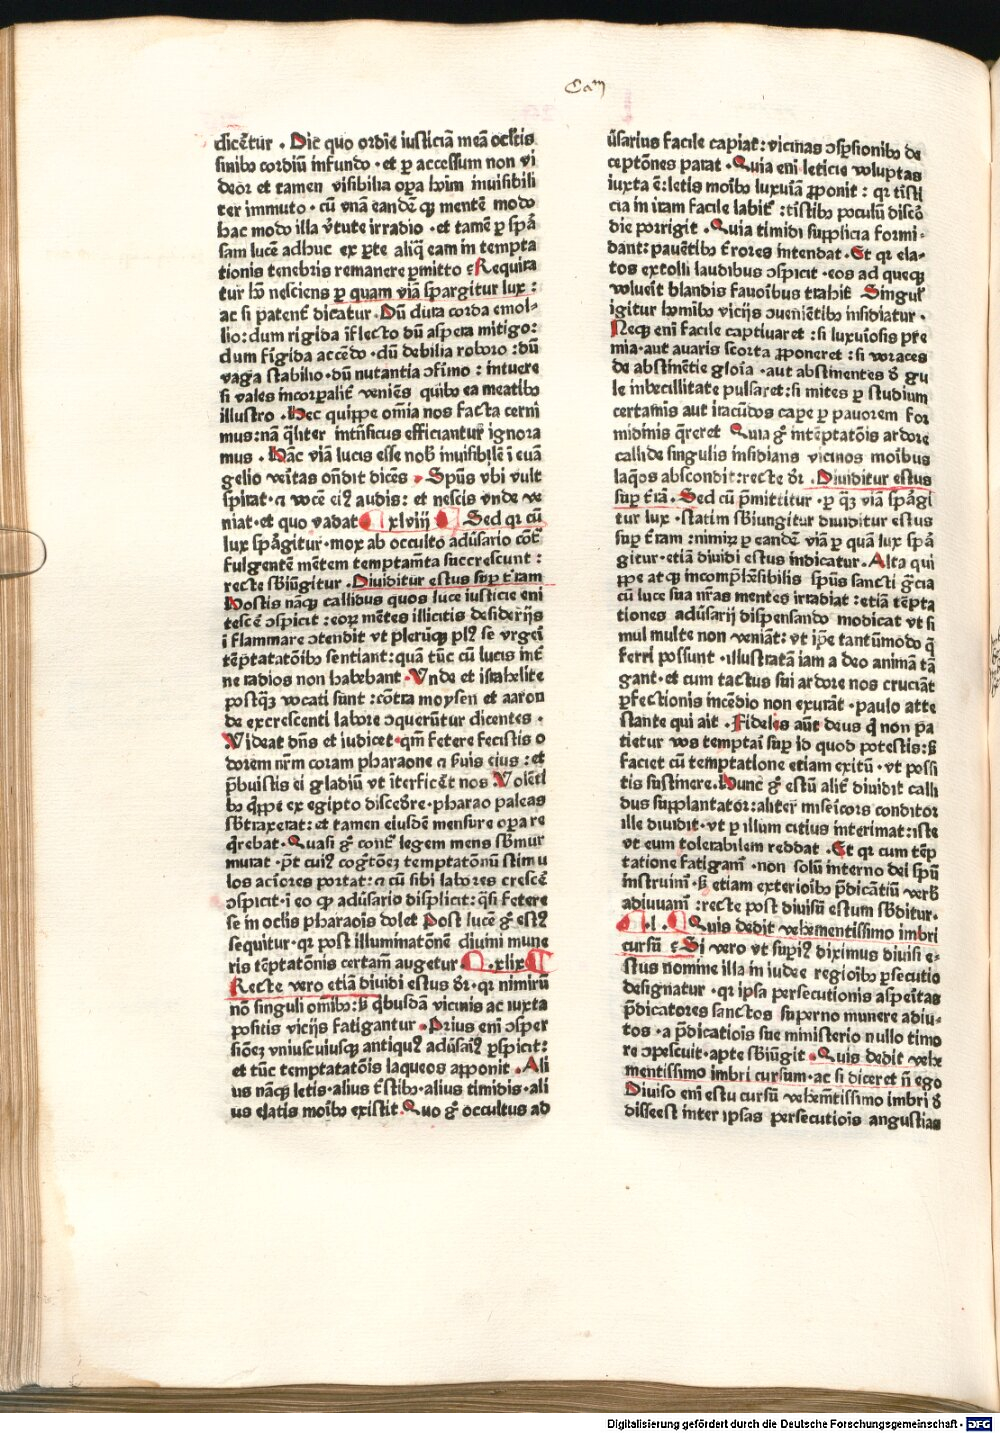 Cam
dicēt̄ur . Dic quo ordīe iusticiā meā ocľtis
sinibꝰ cordiū infundo · et ꝑ accessum non vi
deor et tamen visibilia oꝑa hoīm inuisibili
ter immuto · cū vnā eandē qꝫ mentē modo
hac modo illa v̄tute irradio · et tamē ꝑ spā
sam lucē adhuc ex ꝑte aliq̄ eam in tempta
tionis tenebris remanere ꝑmitto Requira
tur hō nesciens ꝑ quam viā spargitur lux :
ac si patent̄ dicatur . Dū dura corda emol-
lio : dum rigida īflecto dū aspera mitigo :
dum frigida accēdo · dū debilia roboro : dū
vaga stabilio · dū nutantia ɔfirmo : intuere
si vales incorꝑalit̄ veniēs quibꝰ ea meatibꝰ
illustro . Hec quippe om̄ia nos facta cerni
mus : nā q̄liter int̄nsicus efficiantur ignora
mus . Hāc viā lucis esse nob̄ inuisibilē ī euā
gelio veritas ōndit dicēs . Spūs vbi vult
spirat · a vocē eiꝰ audis : et nescis vnde ve
niat · et quo vadat xlviij Sed qr cū
lux spāgitur · mox ab occulto adūsario cōt̄
fulgentem mētem temptamīta succrescunt :
recte sbīūgitur . Diuiditur estus suꝑ t̄ram
Hostis nāqꝫ callidus quos luce iusticie eni
tescē ɔspicit : eoꝝ mētes illicitis desiderijs
īflammare ɔtendit vt plerūqꝫ plꝰ se vrgeī
tēptatatōibꝰ sentiant : quā tūc cū lucis int̄
ne radios non habebant · Vnde et israhelite
postqꝫ vocati sunt : cōtra moysen et aaron
de excrescenti labore ɔquerūtur dicentes .
Videat dn̄s et iudicet · qm̄ fetere fecistis o
dorem nr̄m coram pharaone a ẜuis eius : et
p̄buistis ei gladiū vt īterficēt nos Volēti
bꝰ q̄ppe ex egipto disced̄re · pharao paleas
sb̄traxerat : et tamen eiusdē mensure oꝑa re
q̄rebat · Quasi gͦ cont̄ legem mens sb̄mur
murat · p̄t cuiꝰ cogītōeꝫ temptatōnū stimu
los acriores portat : a cū sibi labores crescē
ɔspicit · ī eo qꝫ adūsario displicit : q̄si fetere
se in oclis pharaois dolet Post lucē gͦ estꝰ
sequitur · qr post illuminatōnē diuini mune
ris tēptatōnis certamī augetur . xlix
Recte vero etiā diuidi estus dr̄ · qr nimirū
nō singuli om̄ibꝰ : ẜ q̄busdā vicinis ac iuxta
positis vicijs fatigantur . Prius enī ɔsper
siōeꝫ vniuscuiusqꝫ antiquꝰ adūsariꝰ ꝑspicit :
et tūc temptatatōis laqueos apponit . Ali
us nāqꝫ letis · alius t̄stibꝰ · alius timidis · ali
us elatis moībꝰ existit . Quo gͦ occultus ad
ūsarius facile capiat : vicinas ɔspsionibꝰ de
ceptōnes parat . Quia enī leticie voluptas
iuxta ē : letis moībꝰ luxuīā ꝓponit : qr tīsti
cia in iram facile labit̄ : tīstibꝰ poculū discō
die porrigit . Quia timidi supplicia formi-
dant : pauētibꝰ t̄rores intendat . Et qr ela-
tos extolli laudibus ɔspicit · eos ad queqꝫ
voluerit blandis fauorībus trahit̄ Singuľ
igitur hoībꝰ vicijs ɔueniētibꝰ insidiatur .
Neqꝫ enī facile captiuaret : si luxuriosis p̄re
mia · aut auaris scorta ꝓponeret : si voraces
de abstinētie gloīa · aut abstinentes d̄ gu
le inbecillitate pulsaret : si mites ꝑ studium
certamīs aut iracūdos capē ꝑ pauorem for
midinis q̄reret Quia gͦ intēptatōis ardore
callide singulis insidians vicinos moībus
laq̄os abscondit : recte dr̄ . Diuiditur estus
suꝑ t̄rā . Sed cū p̄mittitur · ꝑ q̄ꝫ viā spāgi
tur lux · statim sb̄iungitur diuiditur estus
suꝑ t̄ram : nimirꝫ ꝑ eandē viā ꝑ quā lux spā
gitur · etiā diuidi estus indicatur . Alta qui
ppe atqꝫ incomp̄hēsibilis spūs sancti gr̄cia
cū luce sua nr̄as mentes irradiat : etiā tēpta
tiones adūsarij dispensando modicat vt si
mul multe non veniāt : vt ip̄e tantūmodo q̄
ferri possunt · illustratā iam a deo animā tā
gant · et cum tactus sui ardore nos cruciāt
ꝑfectionis incēdio non exurāt · paulo atte
stante qui ait . Fidelis aūt deus q̄ non pa
tietur vos temptari suꝑ id quod potestis : ẜ
faciet cū temptatione etiam exitū · vt possi
tis sustinere . Hunc gͦ estū alit̄ diuidit calli
dus supplantator : aliter misericors conditor
ille diuidit · vt ꝑ illum citius interimat : iste
vt eum tolerabilem reddat . Et qr cum tēp
tatione fatigam̄ · non solū interno dei spū
instruim̄ · ẜ etiam exteriorībꝰ p̄dicātiū verb̄
adiuuam̄ : recte post diuisū estum sb̄ditur .
.l. Quis dedit vehementissimo imbri
cursū Si vero vt supriꝰ diximus diuisi e-
stus nomine illa in iudee regioībꝰ ꝑsecutio
designatur · qr ipsa persecutionis asperitas
p̄dicatores sanctos superno munere adiu-
tos · a p̄dicatiois sue ministerio nullo timo
re ɔpescuit · apte sb̄iūgit . Quis dedit vehe
mentissimo imbri cursum · ac si diceret n̄ ego
Diuiso enī estu cursū vehem̄tissimo imbri d̄
disseest inter ipsas persecutiois angustias
Digitalisierung gefördert durch die Deutsche Forschungsgemeinschaft - DFG